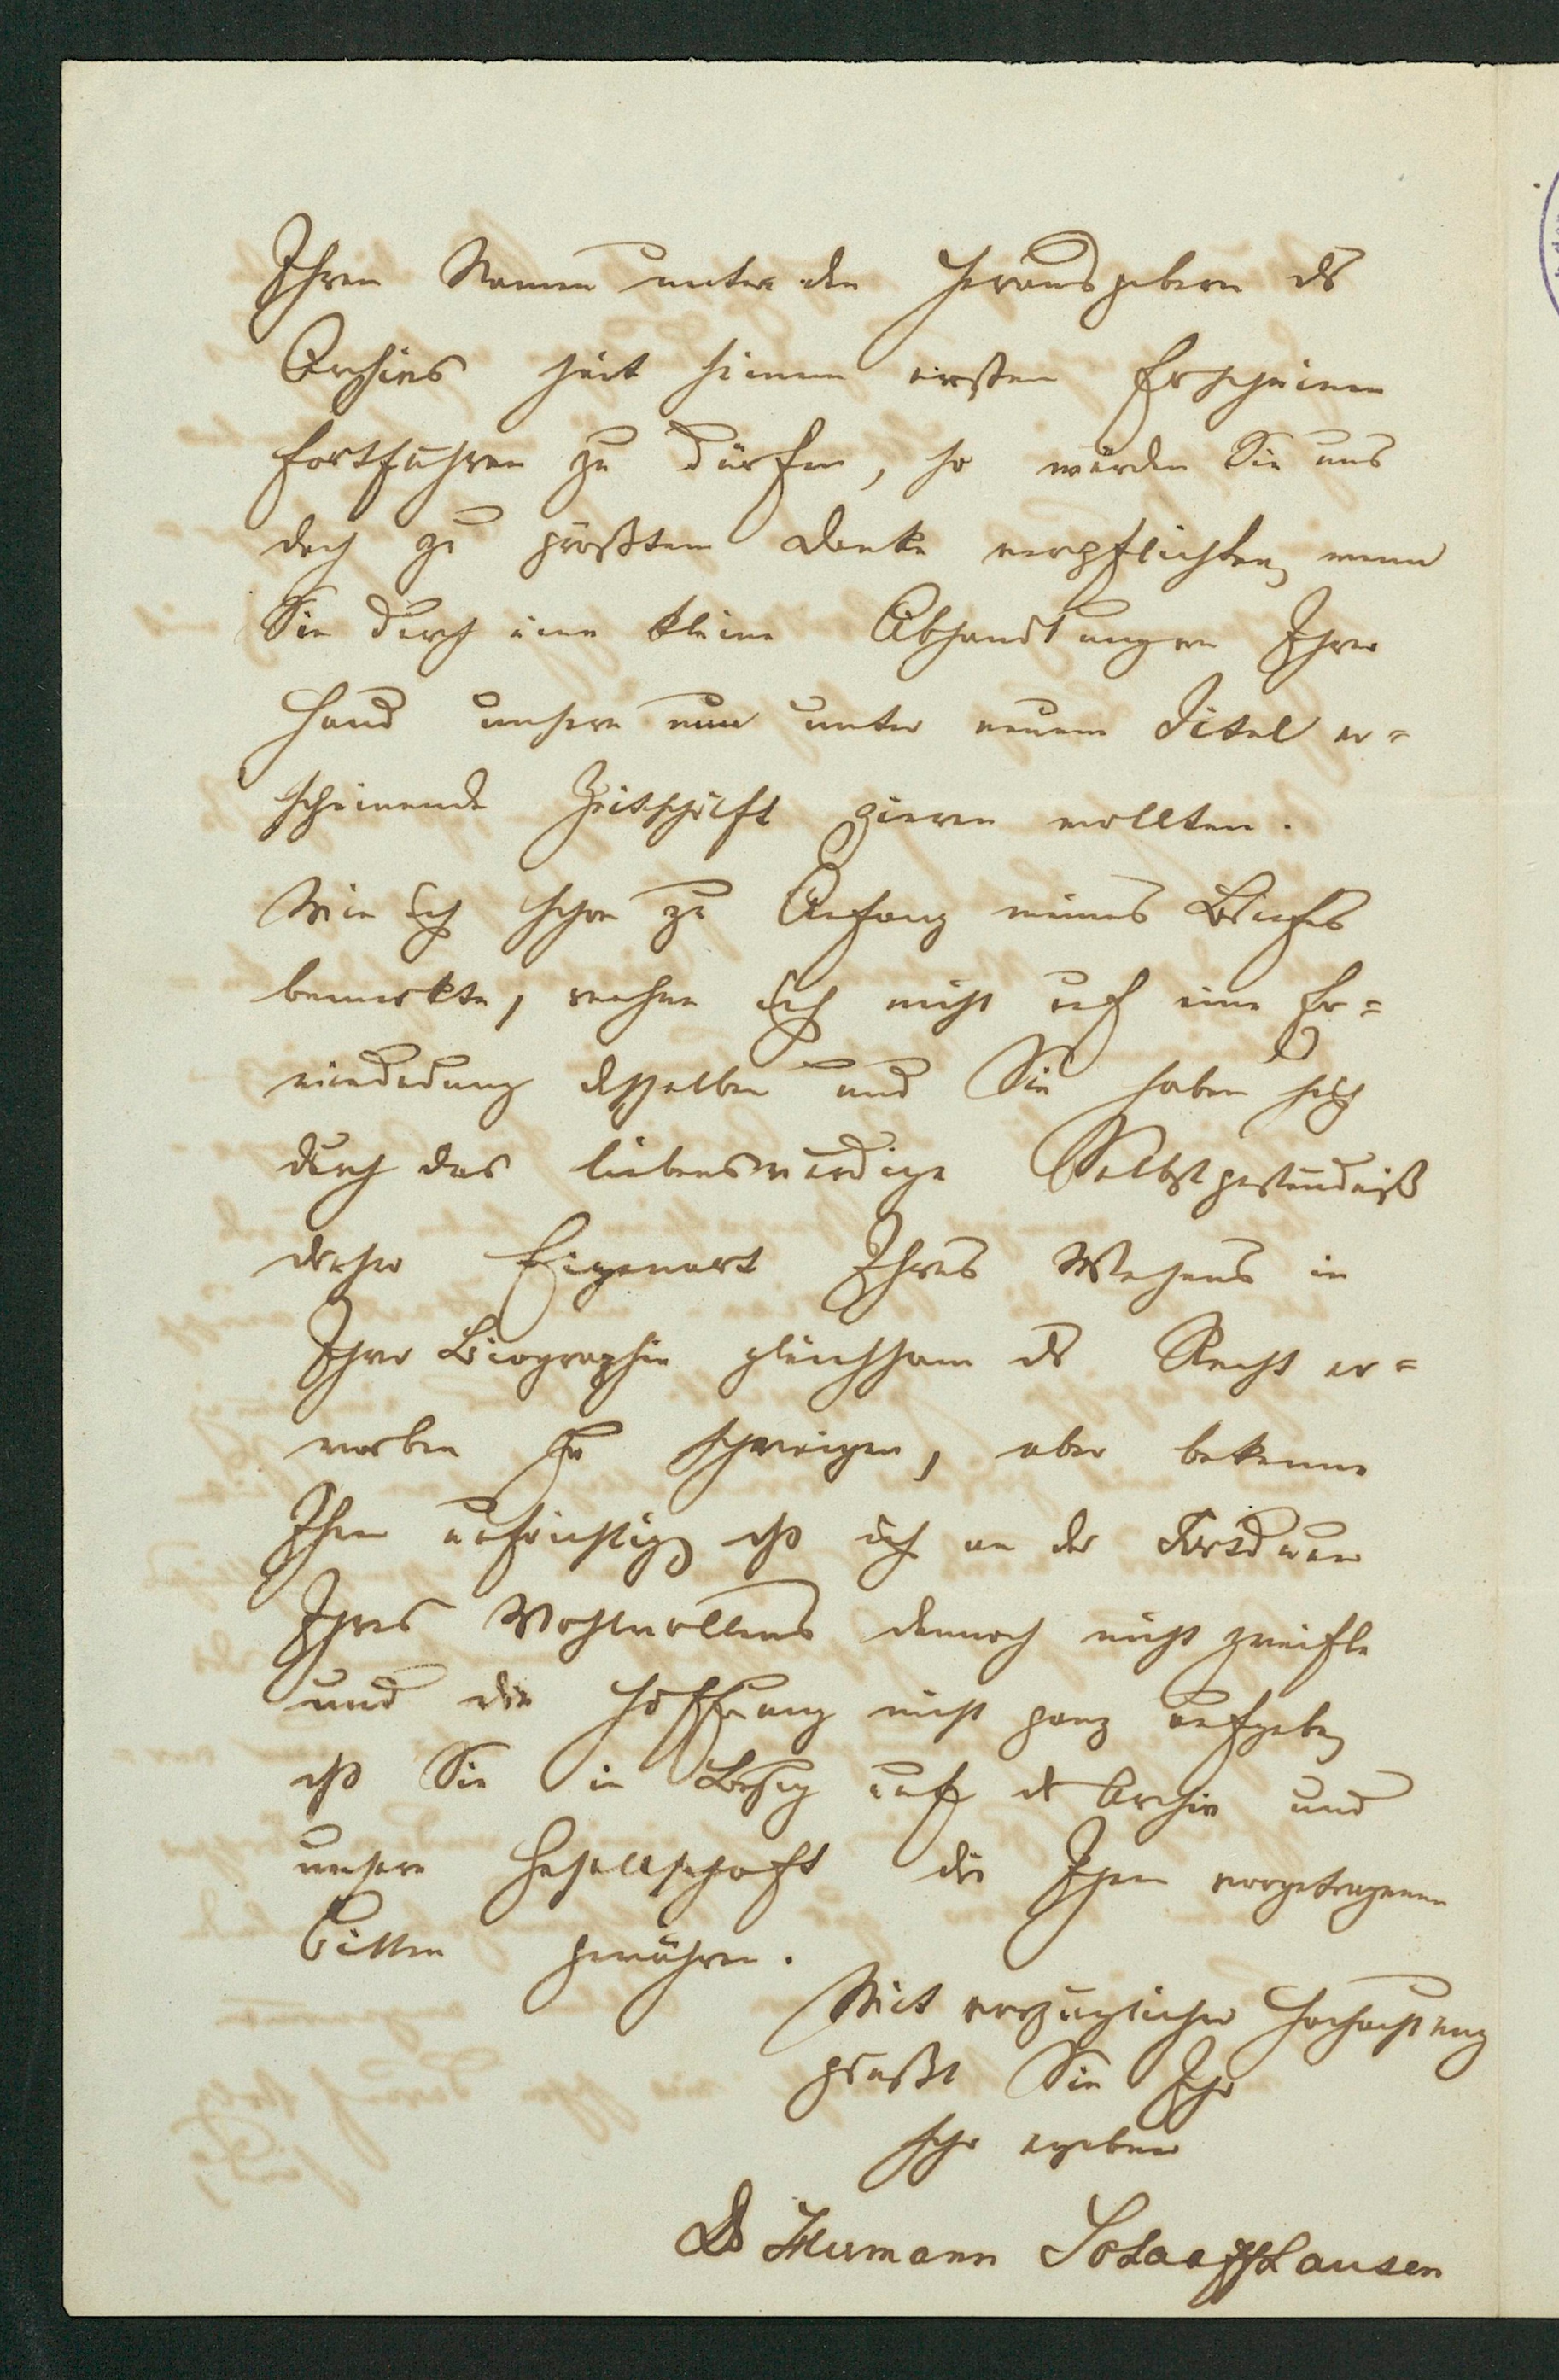 Ihren Namen unter den Herausgebern des
Archivs seit seinem ersten Erscheinen
fortführen zu dürfen, so würden Sie uns
doch zu größtem Danke verpflichten, wenn
Sie durch eine kleine Abhandlungen Ihrer
Hand unsere nun unter neuem Titel er=
scheinende Zeitschrift zieren wollten.
Wie ich schon zu Anfang meines Briefes
bemerkte, rechne ich nicht auf eine Er=
wiederung desselben und Sie haben sich
durch das liebenswürdige Selbstgeständniß
dieser Eigenart Ihres Wesens in
Ihrer Biographie gleichsam das Recht er=
worben zu schweigen, aber bekenne
Ihnen aufrichtig, daß ich an der Fortdauer
Ihres Wohlwollens dennoch nicht zweifle
und die Hoffnung nicht ganz aufgebe,
daß Sie in Bezug auf das Archiv und
unsere Gesellschaft die Ihnen vorgetragenen
Bitten gewähren.
Mit vorzüglicher Hochachtung
grüßt Sie Ihr
sehr ergebener
Dr Hermann Schaaffhausen